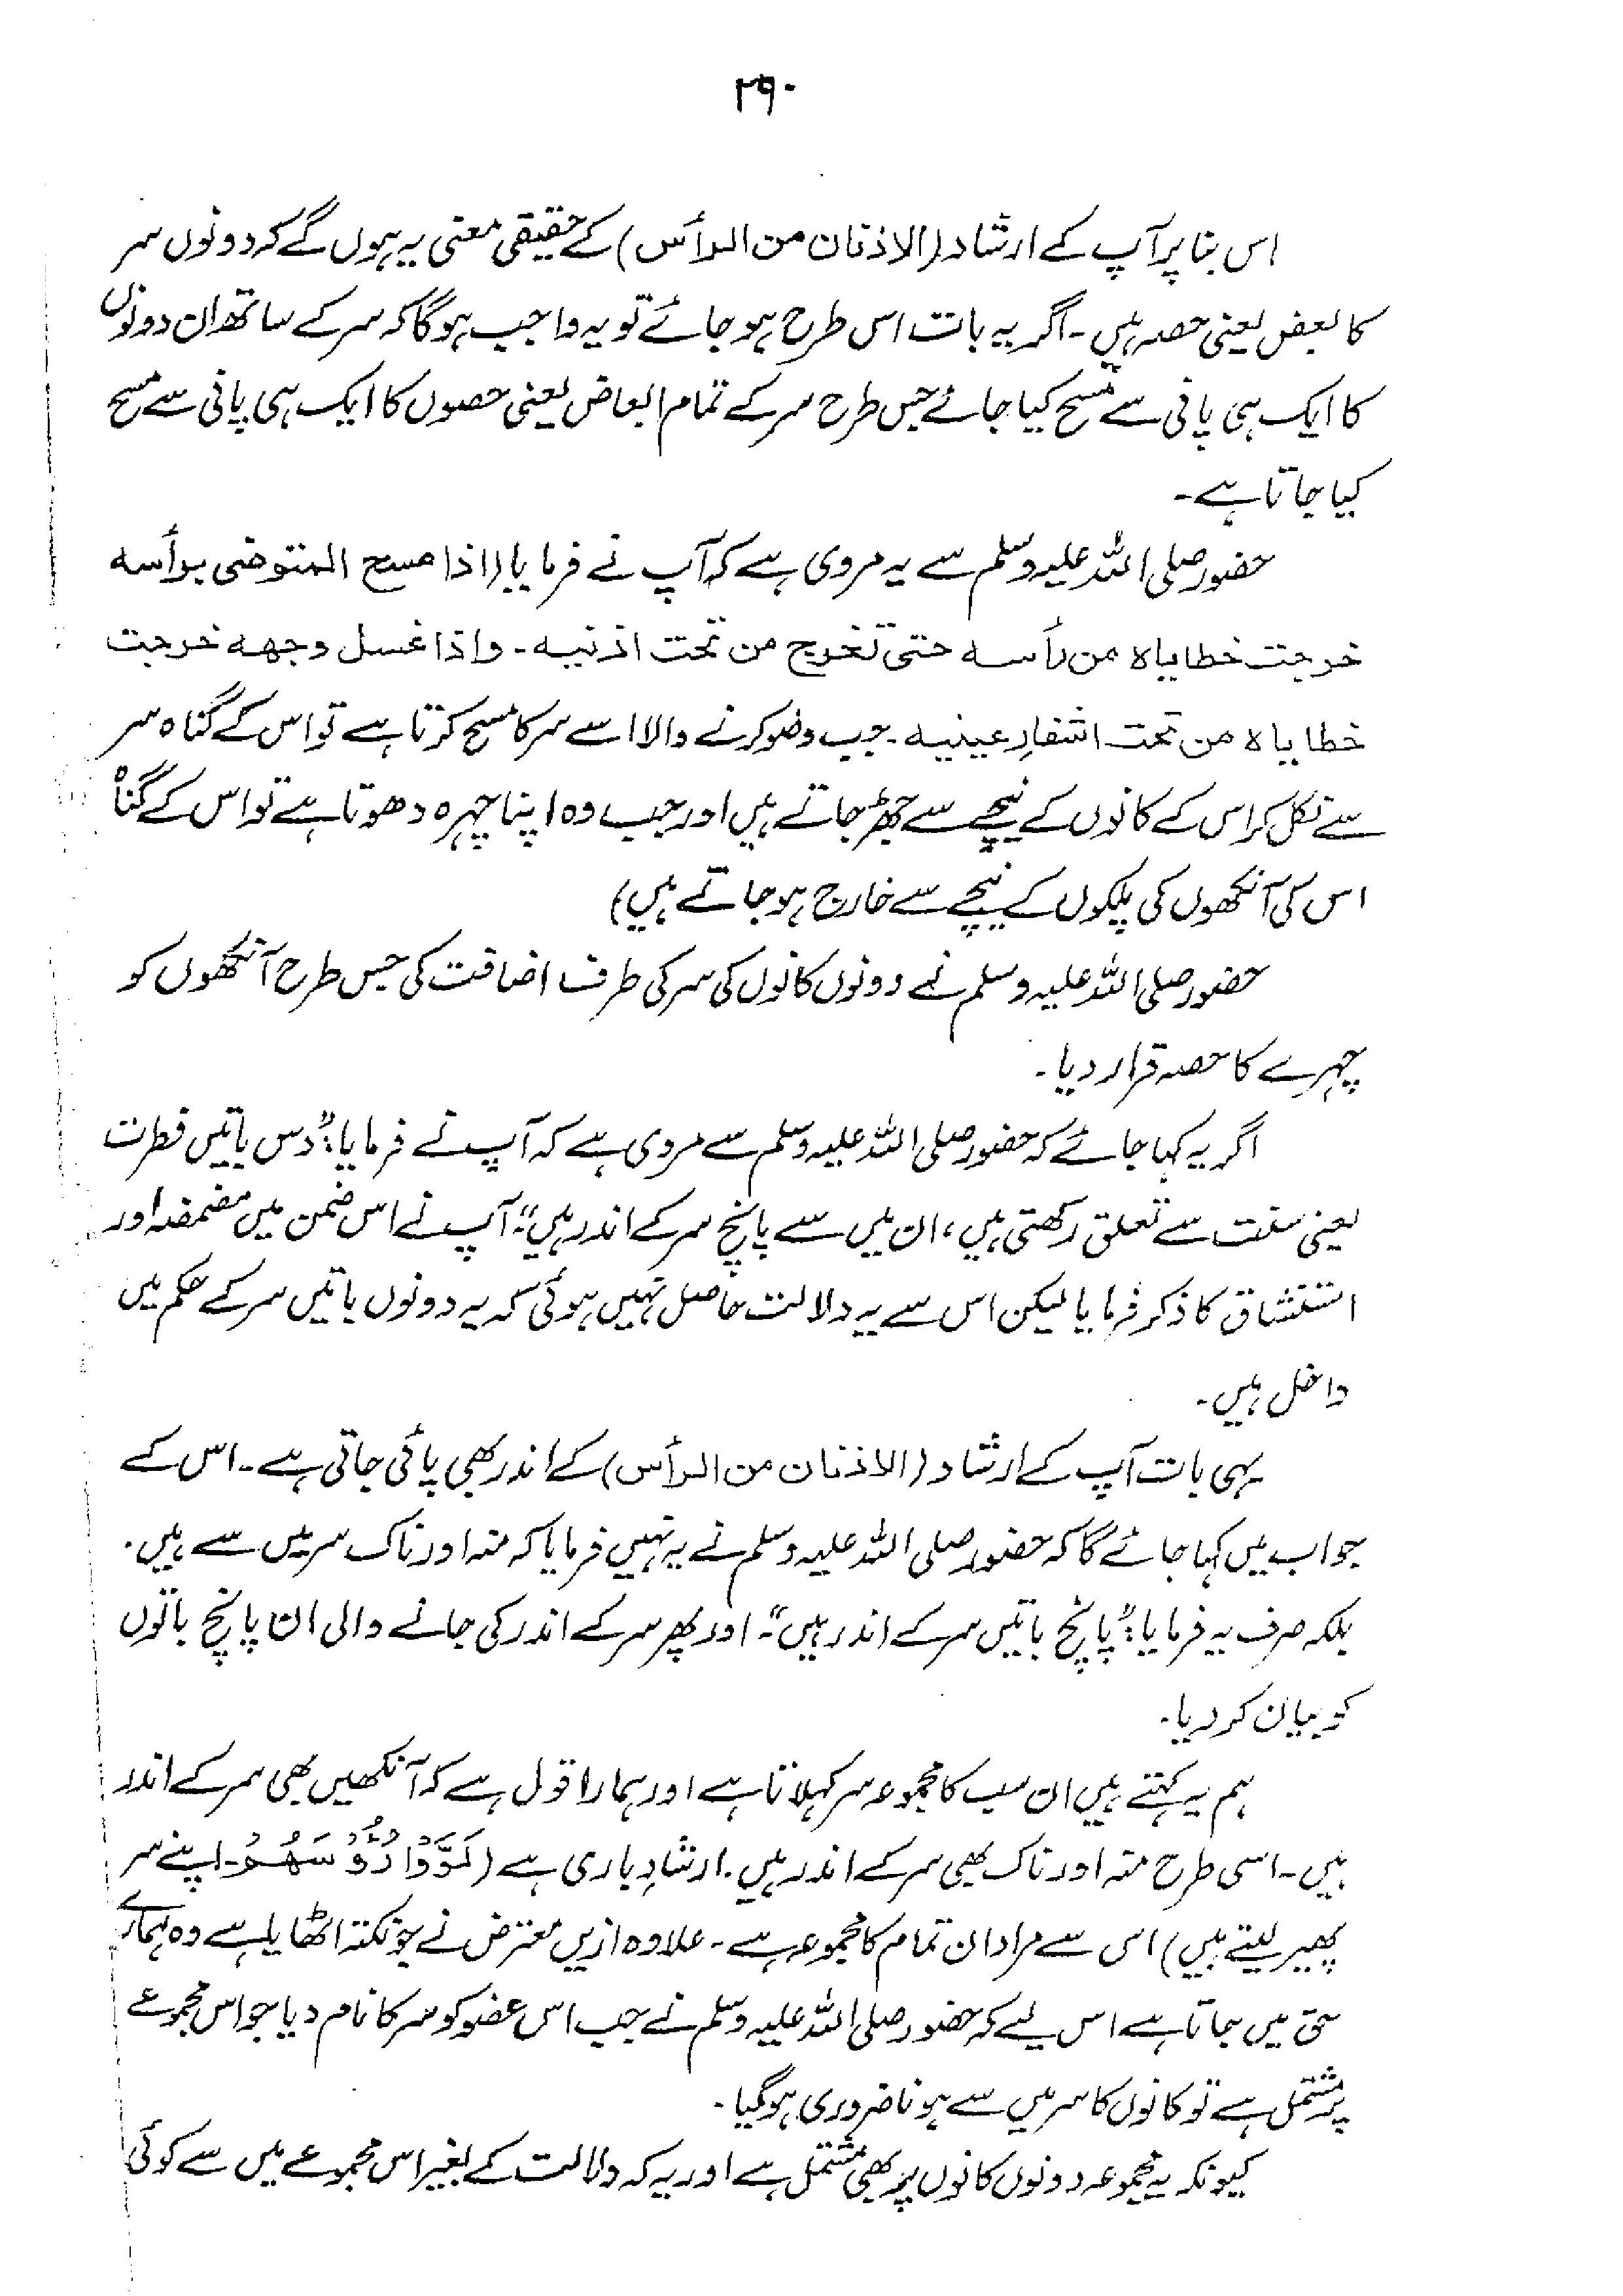 ۲۹۰
اس بنا پر آپ کے ارشاد (الاذنان من الرأس) کے حقیقی معنی یہ ہوں گے کہ دونوں سر
کا بعض یعنی حصہ ہیں۔ اگر یہ بات اس طرح ہو جائے تو یہ واجب ہوگا کہ سر کے ساتھ ان دونوں
کا ایک ہی پانی سے مسح کیا جائے جس طرح سر کے تمام ابعاض یعنی حصوں کا ایک ہی پانی سے مسح
کیا جاتا ہے۔
حضور صلی اللہ علیہ وسلم سے یہ مروی ہے کہ آپ نے فرمایا (اذا مسح المتوضی برأسه
خرجت خطایاه من رأسه حتی تخرج من تحت اذنیه۔ واذا غسل وجهه خرجت
خطایاه من تحت اشفار عینیه۔ جب وضو کرنے والا اسے سر کا مسح کرتا ہے تو اس کے گناہ سر
سے نکل کر اس کے کانوں کے نیچے سے جھڑ جاتے ہیں اور جب وہ اپنا چہرہ دھوتا ہے تو اس کے گناہ
اس کی آنکھوں کی پلکوں کے نیچے سے خارج ہو جاتے ہیں)
حضور صلی اللہ علیہ وسلم نے دونوں کانوں کی سر کی طرف اضافت کی جس طرح آنکھوں کو
چہرے کا حصہ قرار دیا۔
اگر یہ کہا جائے کہ حضور صلی اللہ علیہ وسلم سے مروی ہے کہ آپ نے فرمایا: "دس باتیں فطرت
یعنی سنت سے تعلق رکھتی ہیں، ان میں سے پانچ سر کے اندر ہیں"۔ آپ نے اس ضمن میں مضمضہ اور
استنشاق کا ذکر فرمایا لیکن اس سے یہ دلالت حاصل نہیں ہوئی کہ یہ دونوں باتیں سر کے حکم میں
داخل ہیں۔
یہی بات آپ کے ارشاد (الاذنان من الرأس) کے اندر بھی پائی جاتی ہے۔ اس کے
جواب میں کہا جائے گا کہ حضور صلی اللہ علیہ وسلم نے یہ نہیں فرمایا کہ منہ اور ناک سر میں سے ہیں۔
بلکہ صرف یہ فرمایا: "پانچ باتیں سر کے اندر ہیں"۔ اور پھر سر کے اندر کی جانے والی ان پانچ باتوں
کو بیان کر دیا۔
ہم یہ کہتے ہیں ان سب کا مجموعہ سر کہلاتا ہے اور ہمارا قول ہے کہ آنکھیں بھی سر کے اندر
ہیں۔ اسی طرح منہ اور ناک بھی سر کے اندر ہیں۔ ارشادِ باری ہے (لَوَّوْا رُءُوْسَهُمْ۔ اپنے سر
پھیر لیتے ہیں) اس سے مراد ان تمام کا مجموعہ ہے۔ علاوہ ازیں معترض نے جو نکتہ اٹھایا ہے وہ ہمارے
حق میں جاتا ہے اس لیے کہ حضور صلی اللہ علیہ وسلم نے جب اس عضو کو سر کا نام دیا جو اس مجموعے
پر مشتمل ہے تو کانوں کا سر میں سے ہونا ضروری ہوگیا۔
کیونکہ یہ مجموعہ دونوں کانوں پر بھی مشتمل ہے اور یہ کہ دلالت کے بغیر اس مجموعے میں سے کوئی